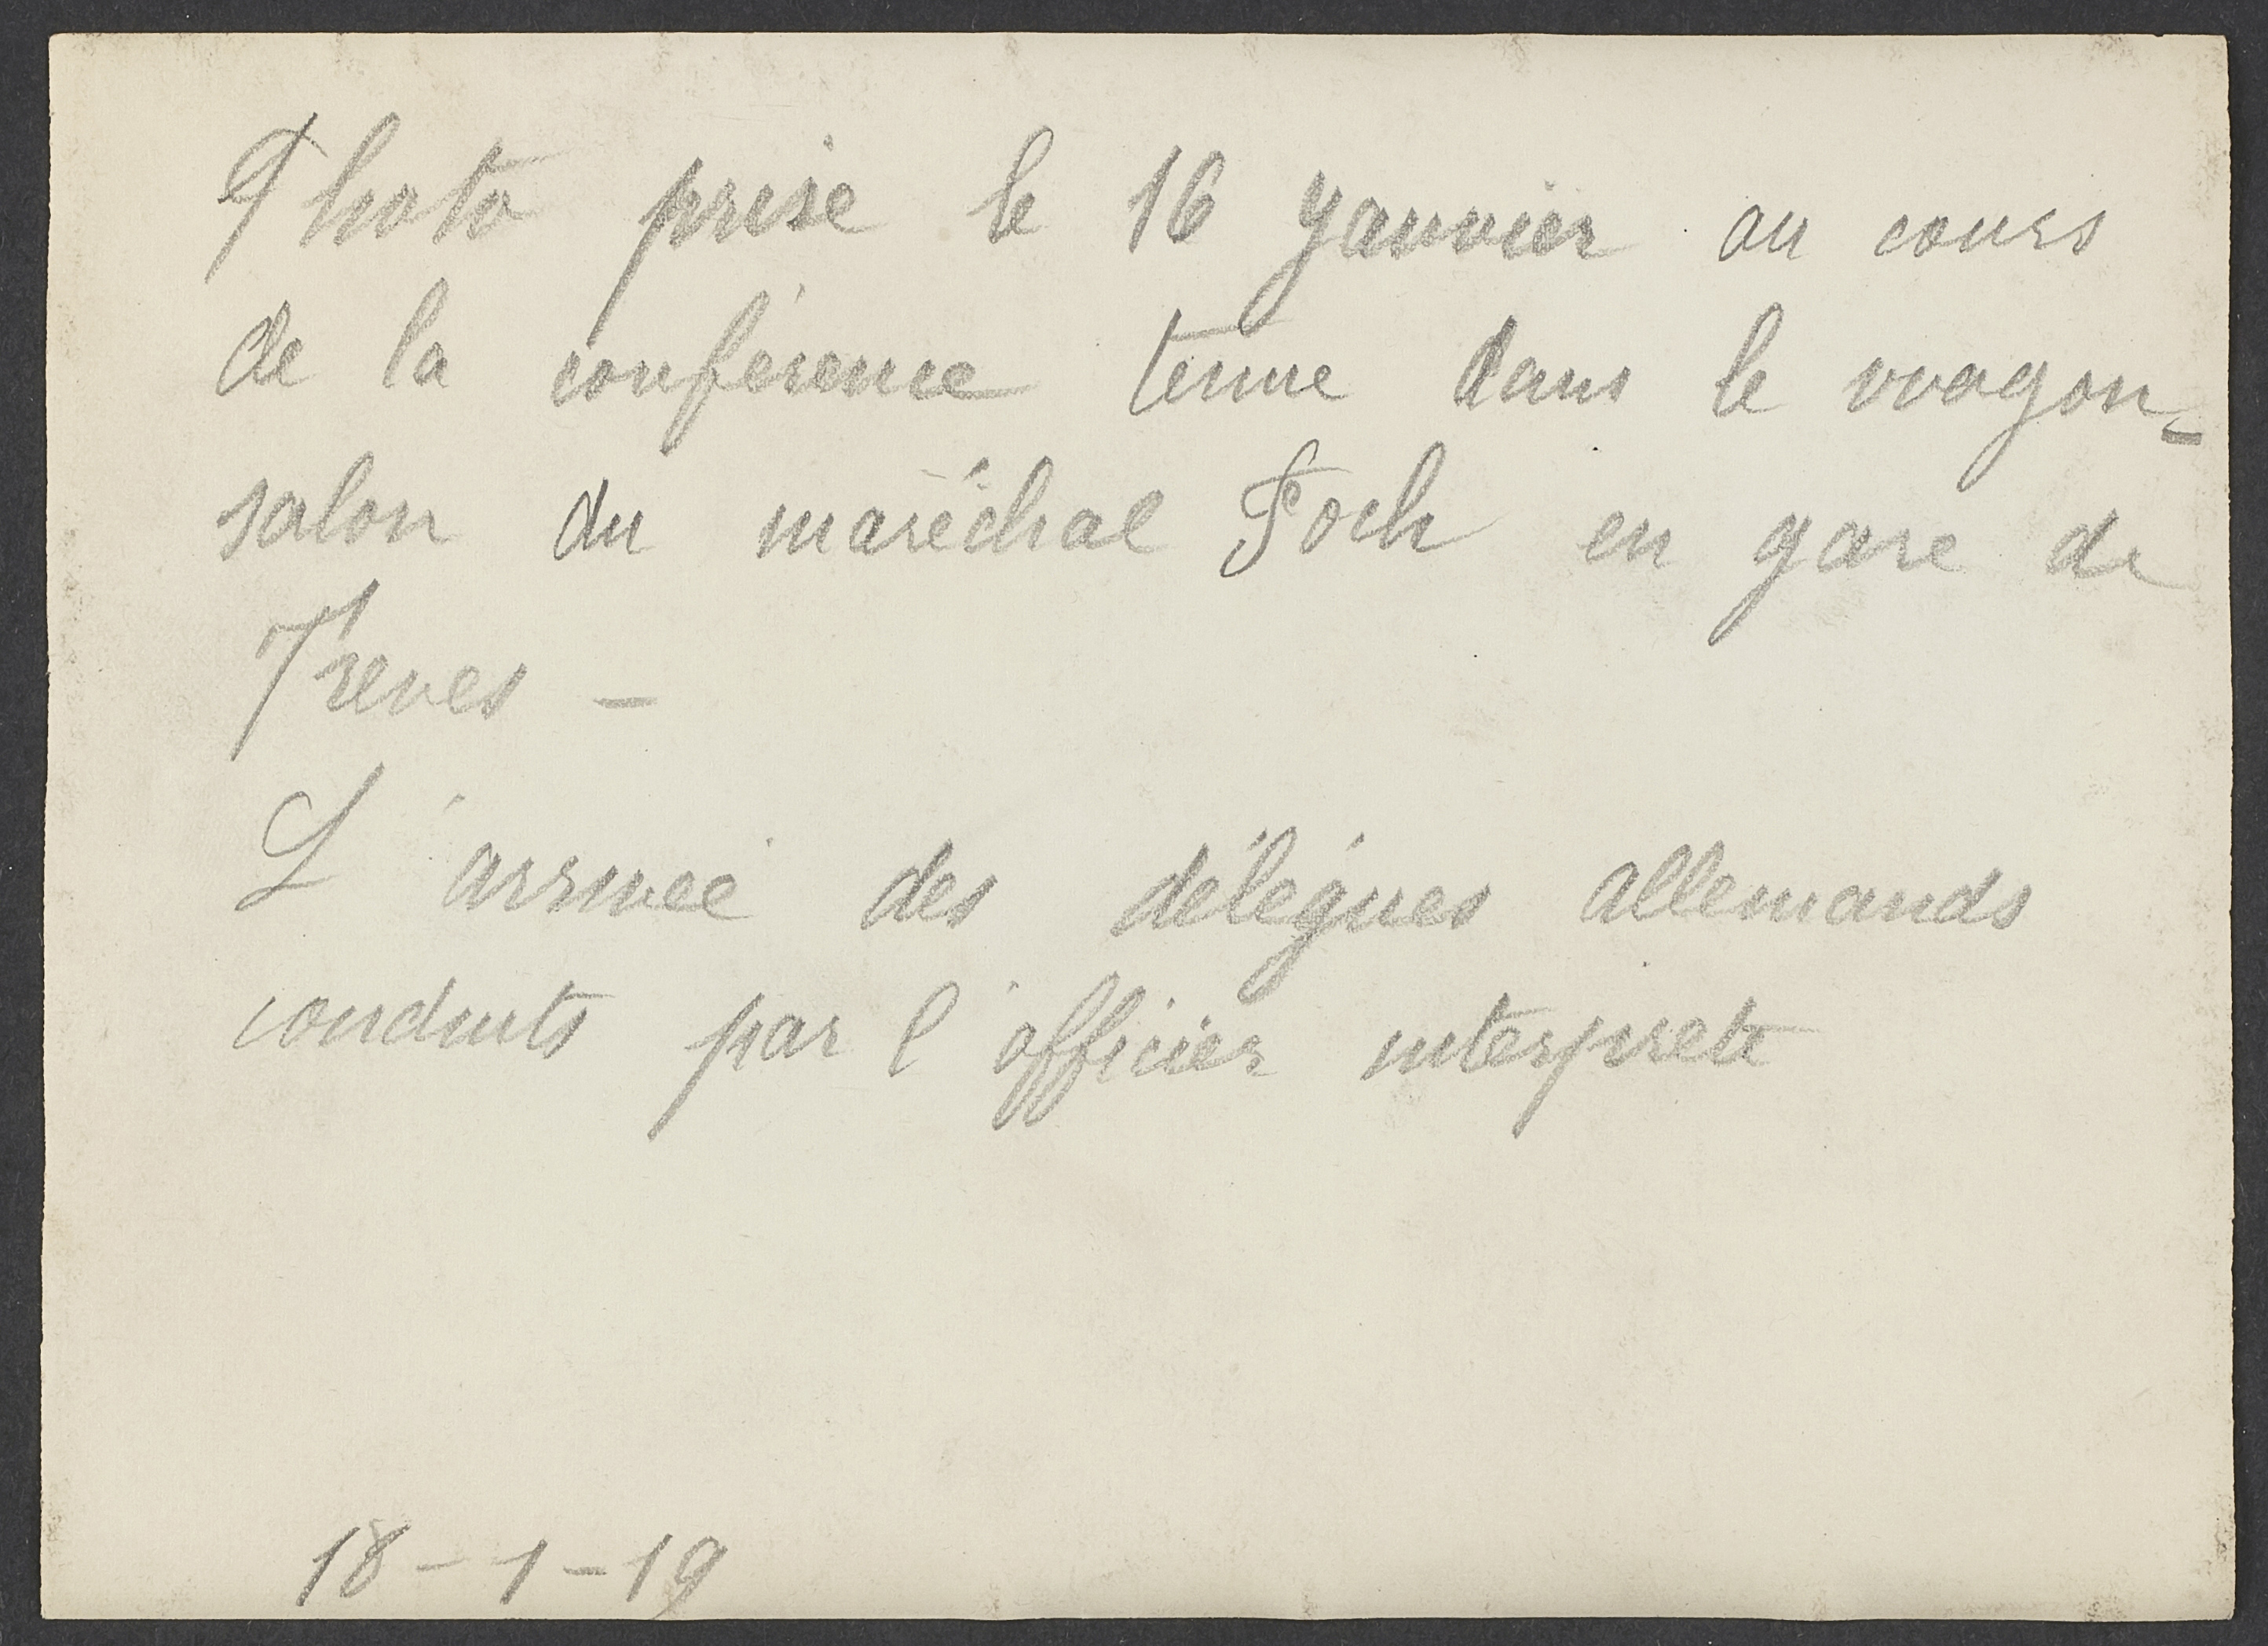 Photo prise le 16 Janvier au cours
de la conférence tenue dans le wagon-
salon du maréchal Foch en gare de
Treves –
L'arrivée des délégués allemands
conduits par l'officier interprete
18-1-19